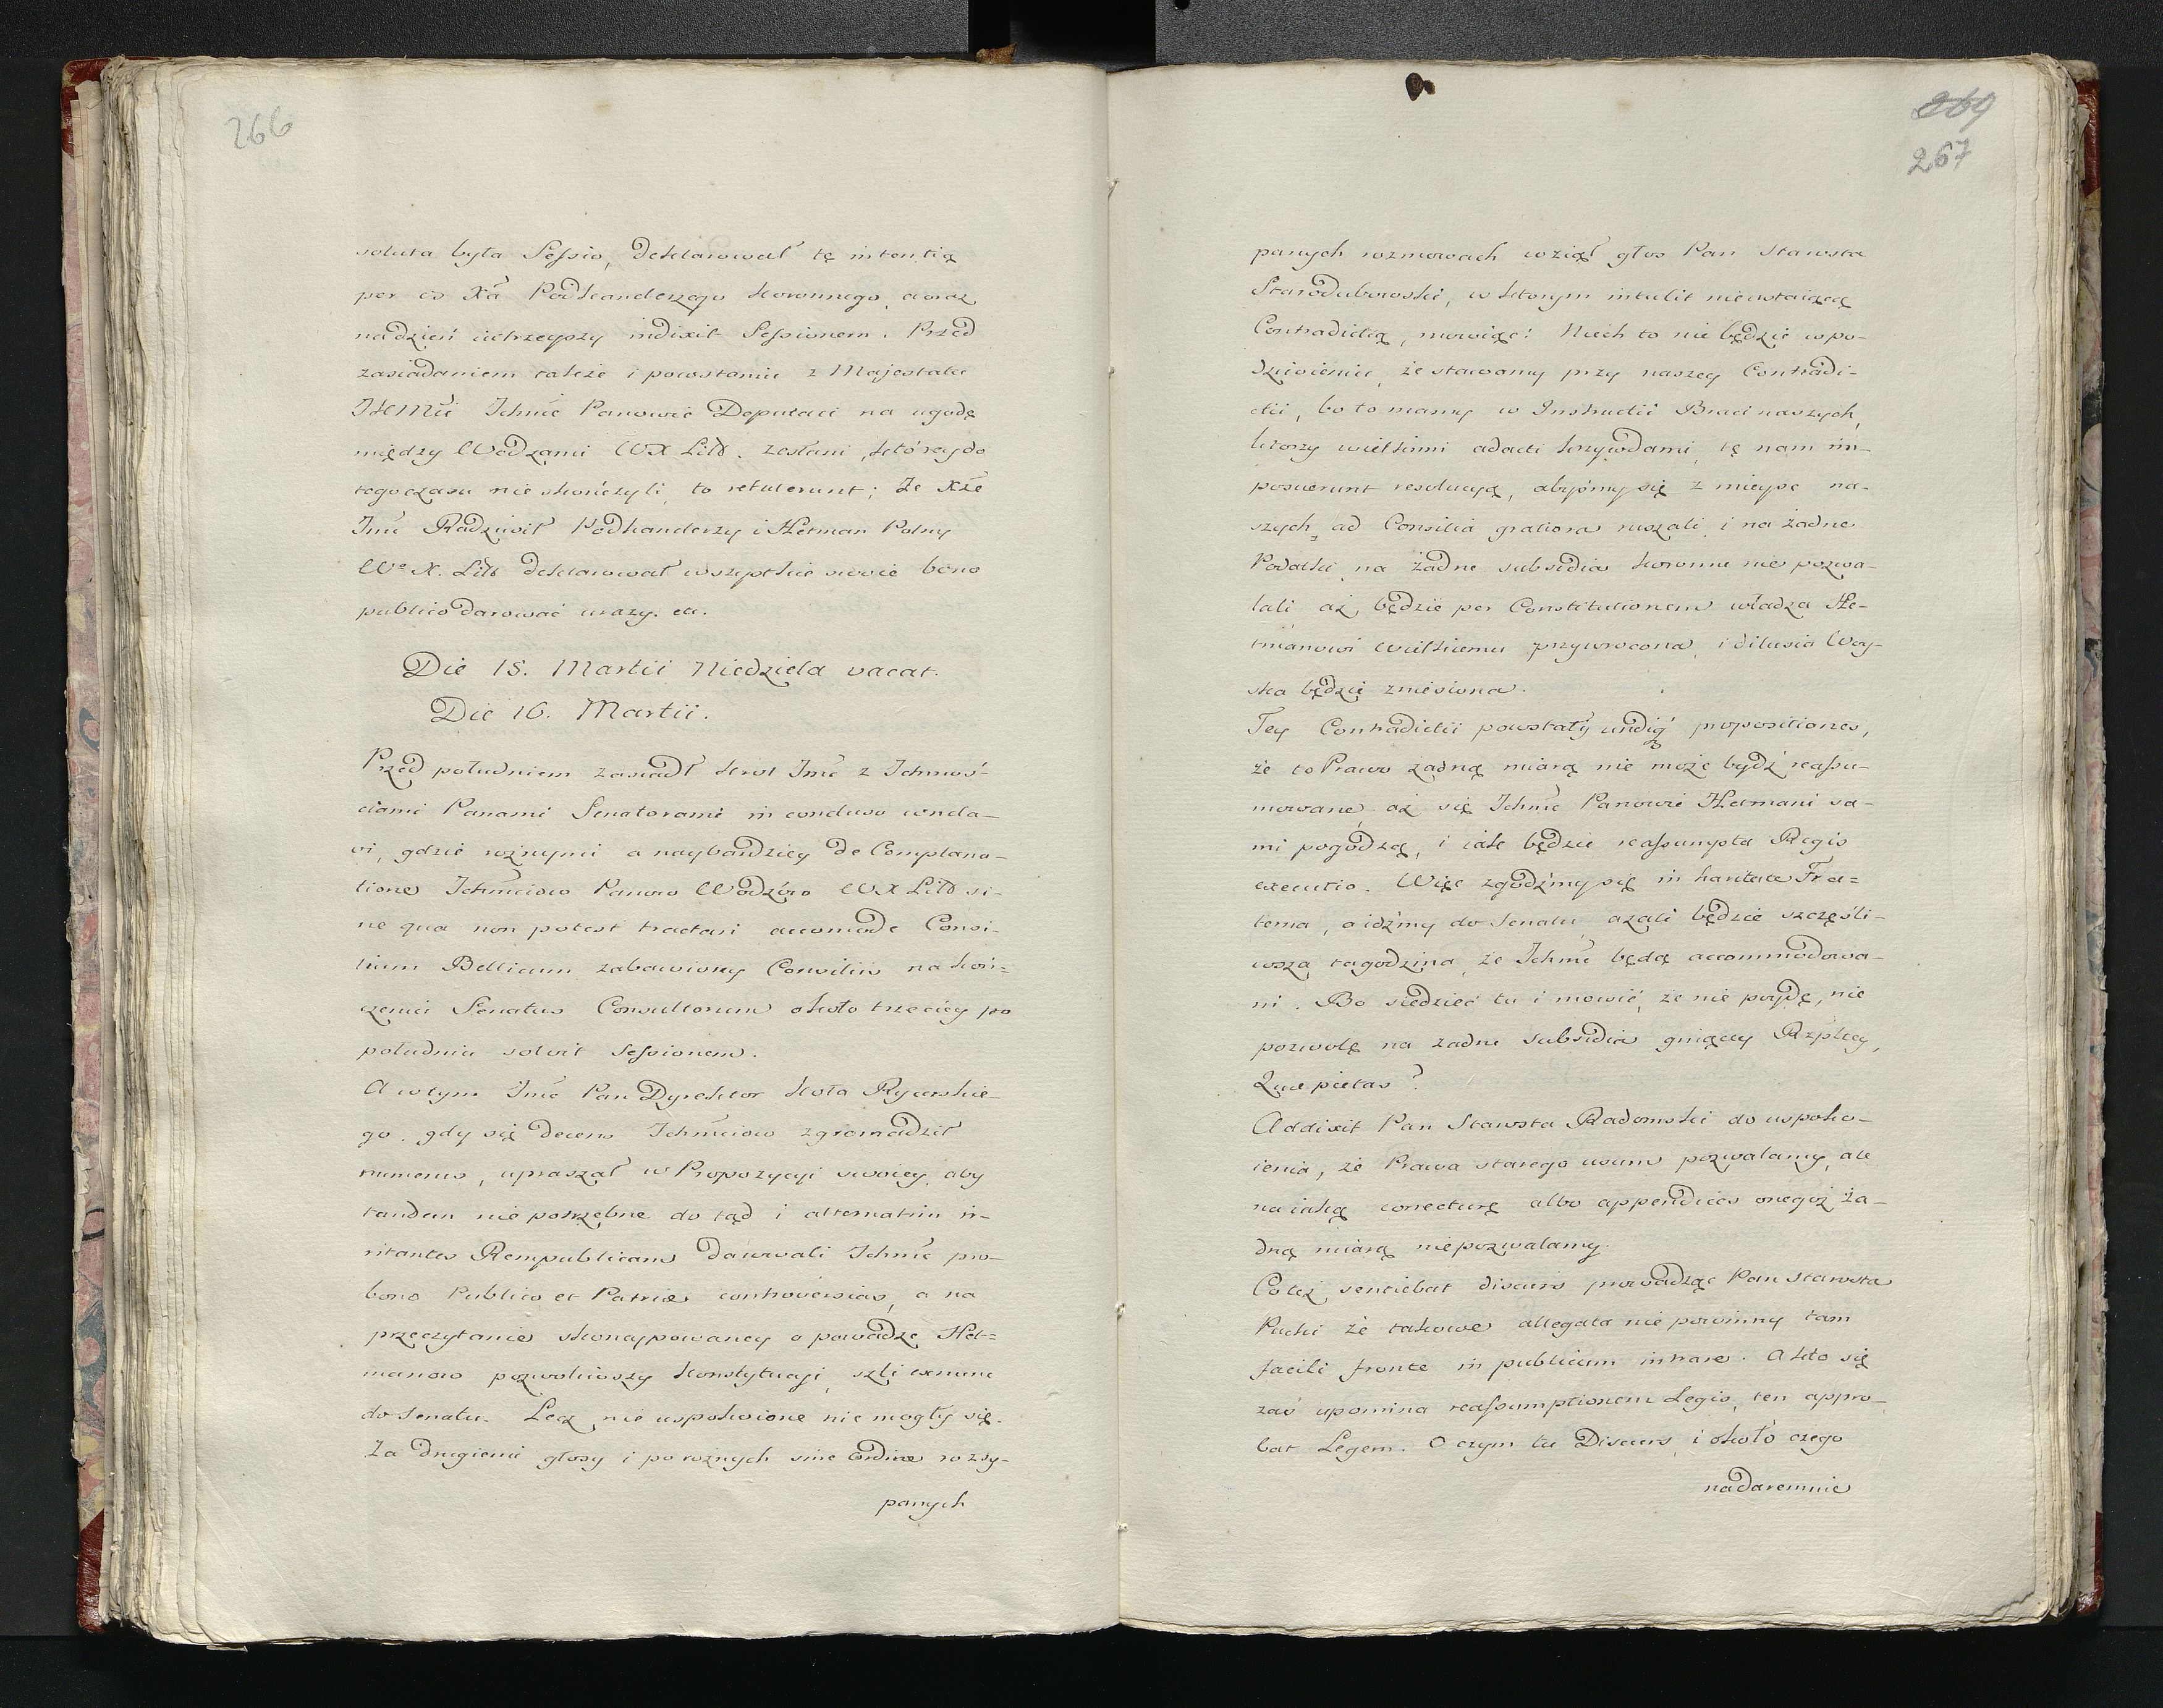 266
soluta była Sessio, deklarował tę intentią
per os Xa Podkanclerzego Koronnego, a oraz
na dzień iutrzeyszy indixit Sessionem. Przed
zasiadaniem także i powstaniu z Majestatu
JKMći Ichmć Panowie Deputaci na ugodę
między Wodzami WX Litt. zesłani, którey do
tego czasu nie skończyli, to retulerunt; Że Xże
Jmć Radziwił Podkanclerzy i Hetman Polny
Wo X. Litt deklarował wszystkie swoie bono
publico darować urazy. etc.
Die 15. Martii Niedziela vacat.
Die 16. Martii.
Przed południem zasiadł Krol Jmć z Ichmoś-
ciami Panami Senatorami in concluso concla-
vi, gdzie rożnymi a naybardziey de Complana-
tione Ichmćiow Panow Wodzow WX Litt si-
ne qua non potest tractari accomode Consi-
lium Bellicum zabawiony Consiliis na koń=
czeniu Senatus Consultorum około trzeciey po
południu solvit sessionem.
A wtym Jmć Pan Dyrektor Koła Rycerskie-
go, gdy się decens Ichmćiow zgromadził
numerus, upraszał w Propozycyi swoiey, aby
tandem nie potrzebne do tąd i alternatim ir-
ritantes Rempublicam darowali Ichmć pro
bono Publico et Patriæ controversias, a na
przeczytanie skonnypowaney o powadze Het=
manow pozwoliwszy Konstytucyi, szli ex nunc
do Senatu. Lecz nie uspokoione nie mogły się.
Za drugiemi głosy i po rożnych sine Ordine rozsy-
panych
269
267
panych rozmowach wziął głos Pan Starosta
Starodubowski, w ktorym intulit nieustaiącą
Contradictią, mowiąc: Niech to nie będzie w po-
dziwieniu, że stawamy przy naszey Contradi-
ctii, bo to mamy w Instructii Braci naszych,
ktorzy wielkimi adacti krzywdami, tę nam im-
posuerunt resolucyą, abyśmy się z mieysc na-
szych, ad Consilia gratiora ruszali, i na żadne
Podatki na żadne subsidia Koronne nie pozwa-
lali aż będzie per Constitutionem władza He-
tmanowi Wielkiemu przywrocona, i dilusia Woy-
ska będzie zniesiona.
Tey Contradictii powstały undiq propositiones,
że to Prawo żadną miarą nie może bydź reassu-
mowane, aż się Ichmć Panowie Hetmani sa-
mi pogodzą, i iak będzie reassumpta Regis
executio. Więc zgodźmy się in haritate Fra=
terna, a idźmy do Senatu, azali będzie szczęśli-
wsza ta godzina, że Ichmć będą accommodowa-
ni. Bo siedzieć tu i mowić, że nie poydę, nie
pozwolę na żadne subsidia ginącey Rzpltey,
Quæ pietas?
Addixit Pan Starosta Radomski do uspoko-
ienia, że Prawa starego usum pozwalamy, ale
na iaką correcturę albo appendices onegoż ża-
dną miarą nie pozwalamy.
Coteż sentiebat discurs prowadząc Pan Starosta
Pucki że takowe allegata nie powinny tam
facili fronte in publicum intrare. A kto się
zaś upomina reassumptionem Legis, ten appro-
bat Legem. O czym tu Discurs, i około czego
nadaremnie